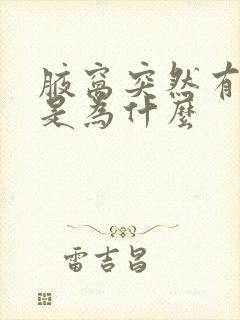 腋窩突然有
是為什麼
雷吉昌